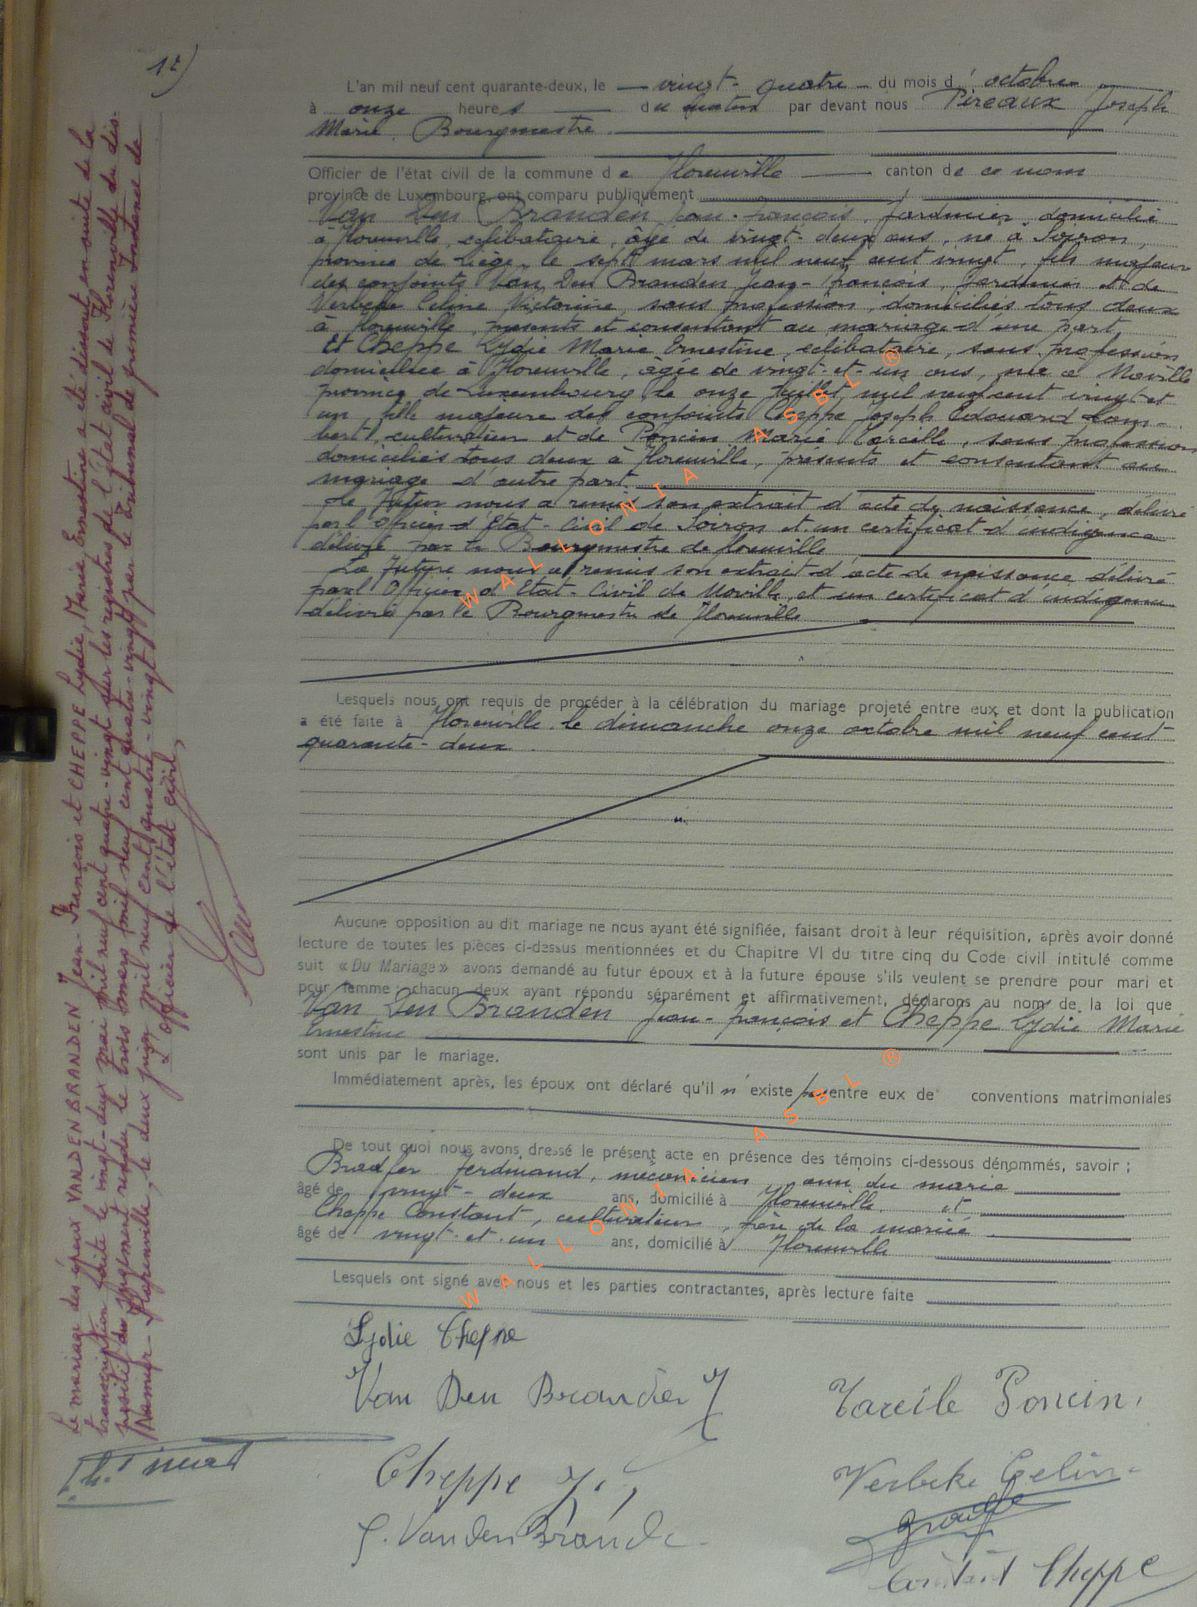 12)
L'an mil neuf cent quarante-deux, le vingt-quatre du mois d'octobre
à onze heures du matin par devant nous Pireaux Joseph
Marie Bourgmestre.
Officier de l'état civil de la commune de Florenville canton de ce nom
province de Luxembourg, ont comparu publiquement
Van Den Branden Jean-François, Jardinier, domicilié
à Florenville, célibataire, âgé de vingt-deux ans, né à Soiron,
province de Liège, le sept mars mil neuf cent vingt, fils majeur
des conjoints Van Den Branden Jean-François, Jardinier et de
Verbeke Celine Victorine, sans profession, domiciliés tous deux
à Florenville, présents et consentant au mariage d'une part,
Et Cheppe Lydie Marie Ernestine, célibataire, sans profession
domiciliée à Florenville, âgée de vingt-et-un ans, née à Moville
province de Luxembourg le onze Juillet mil neuf cent vingt et
un, fille majeure des conjoints Cheppe Joseph Edouard Lam-
bert, cultivateur et de Poncin Marie Marcelle, sans profession
domiciliés tous deux à Florenville, présents et consentant au
mariage d'autre part.
Le Futur nous a remis son extrait d'acte de naissance, délivré
par l'Officier d'Etat-Civil de Soiron et un certificat d'indigence
délivré par le Bourgmestre de Florenville
La Future nous a remis son extrait d'acte de naissance délivré
par l'Officier d'Etat-Civil de Moville, et un certificat d'indigence
délivré par le Bourgmestre de Florenville
Lesquels nous ont requis de procéder à la célébration du mariage projeté entre eux et dont la publication
a été faite à Florenville le dimanche onze octobre mil neuf cent
quarante-deux
Aucune opposition au dit mariage ne nous ayant été signifiée, faisant droit à leur réquisition, après avoir donné
lecture de toutes les pièces ci-dessus mentionnées et du Chapitre VI du titre cinq du Code civil intitulé comme
suit « Du Mariage » avons demandé au futur époux et à la future épouse s'ils veulent se prendre pour mari et
pour femme chacun deux ayant répondu séparément et affirmativement, déclarons au nom de la loi que
Van Den Branden Jean-François et Cheppe Lydie Marie
Ernestine
sont unis par le mariage.
Immédiatement après, les époux ont déclaré qu'il n'existe pas entre eux de conventions matrimoniales
De tout quoi nous avons dressé le présent acte en présence des témoins ci-dessous dénommés, savoir ;
Ferdinand, mécanicien, ami du marié
âgé de vingt-deux ans, domicilié à Florenville et
Cheppe Constant, cultivateur, frère de la mariée
âgé de vingt et un ans, domicilié à Florenville
Lesquels ont signé avec nous et les parties contractantes, après lecture faite
Lydie Cheppe
Van Den Branden J
Marcelle Poncin
Cheppe J.
Verbeke Celine
J. Vanden Brande
Constant Cheppe
Le mariage des époux VAN DEN BRANDEN Jean-François et CHEPPE Lydie, Marie, Ernestine a été dissout en suite de la
transcription faite le vingt-deux mai mil neuf cent quatre-vingt sur les registres de l'état civil de Florenville du dis-
positif du jugement rendu le trois mars mil neuf cent quatre-vingt par le Tribunal de première Instance de
Namur - Florenville, le deux juin mil neuf cent quatre-vingt
L'officier de l'état civil,
WALLONIA ASBL ®
WALLONIA ASBL ®